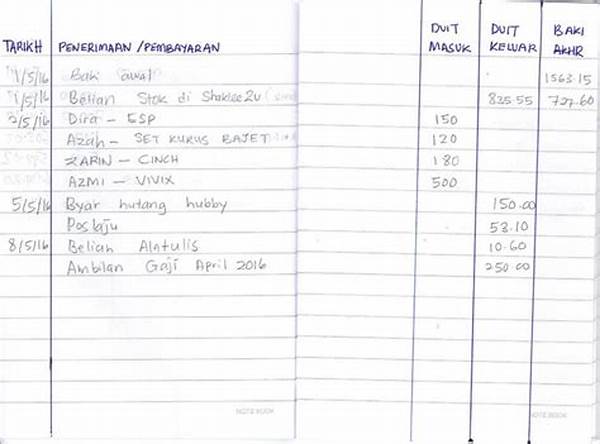 TARIKH PENERIMAAN /PEMBAYARAN DUIT MASUK DUIT KELUAR BAKI AKHR
1/5/16 Baki awal 1563.15
1/5/16 Belian Stok di Shaklee2u 835.55 727.60
2/5/16 Dira - ESP 150
Azah - SET KURUS BAJET 120
ZARIN - CINCH 180
AZMI - VIVIX 500
5/5/16 Byar hutang hubby 150.00
Poslaju 53.10
8/5/16 Belian Alatulis 10.60
Ambilan Gaji April 2016 250.00
NOTE BOOK NOTE BOOK